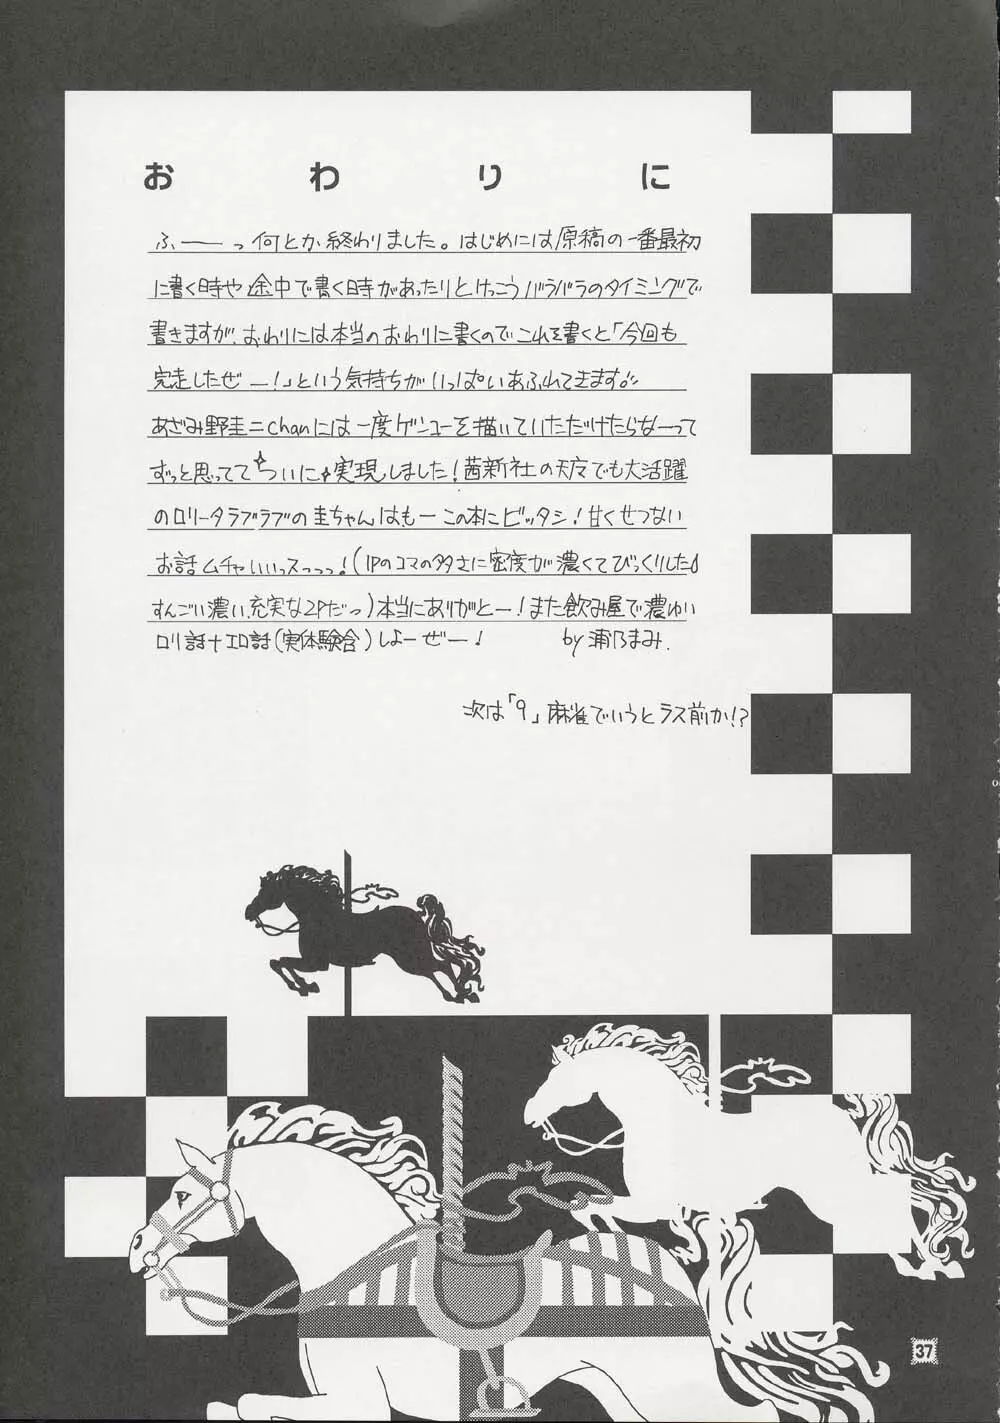 おわりに
ふーーっ何とか終わりました。はじめには原稿の一番最初
に書く時や途中で書く時があったりとけっこうバラバラのタイミングで
書きますが、おわりには本当のおわりに書くのでこれを書くと「今回も
完走したぜー!」という気持ちがいっぱいあふれてきます。
あざみ野圭二chanには一度ゲンコーを描いていただけたらなーって
ずっと思ってて ついに 実現しました!茜新社の天文でも大活躍
のロリータラブラブの圭ちゃんはもーこの本にピッタシ!甘くせつない
お話ムチャいいっスっっっ!(1Pのコマの多さに密度が濃くてびっくりした♪
すんごい濃い、充実な2Pだっ)本当にありがとー!また飲み屋で濃ゆい
ロリ話+エロ話(実体験含)しよーぜー! by 浦乃まみ.
次は「9」麻雀でいうとラス前か!?
37